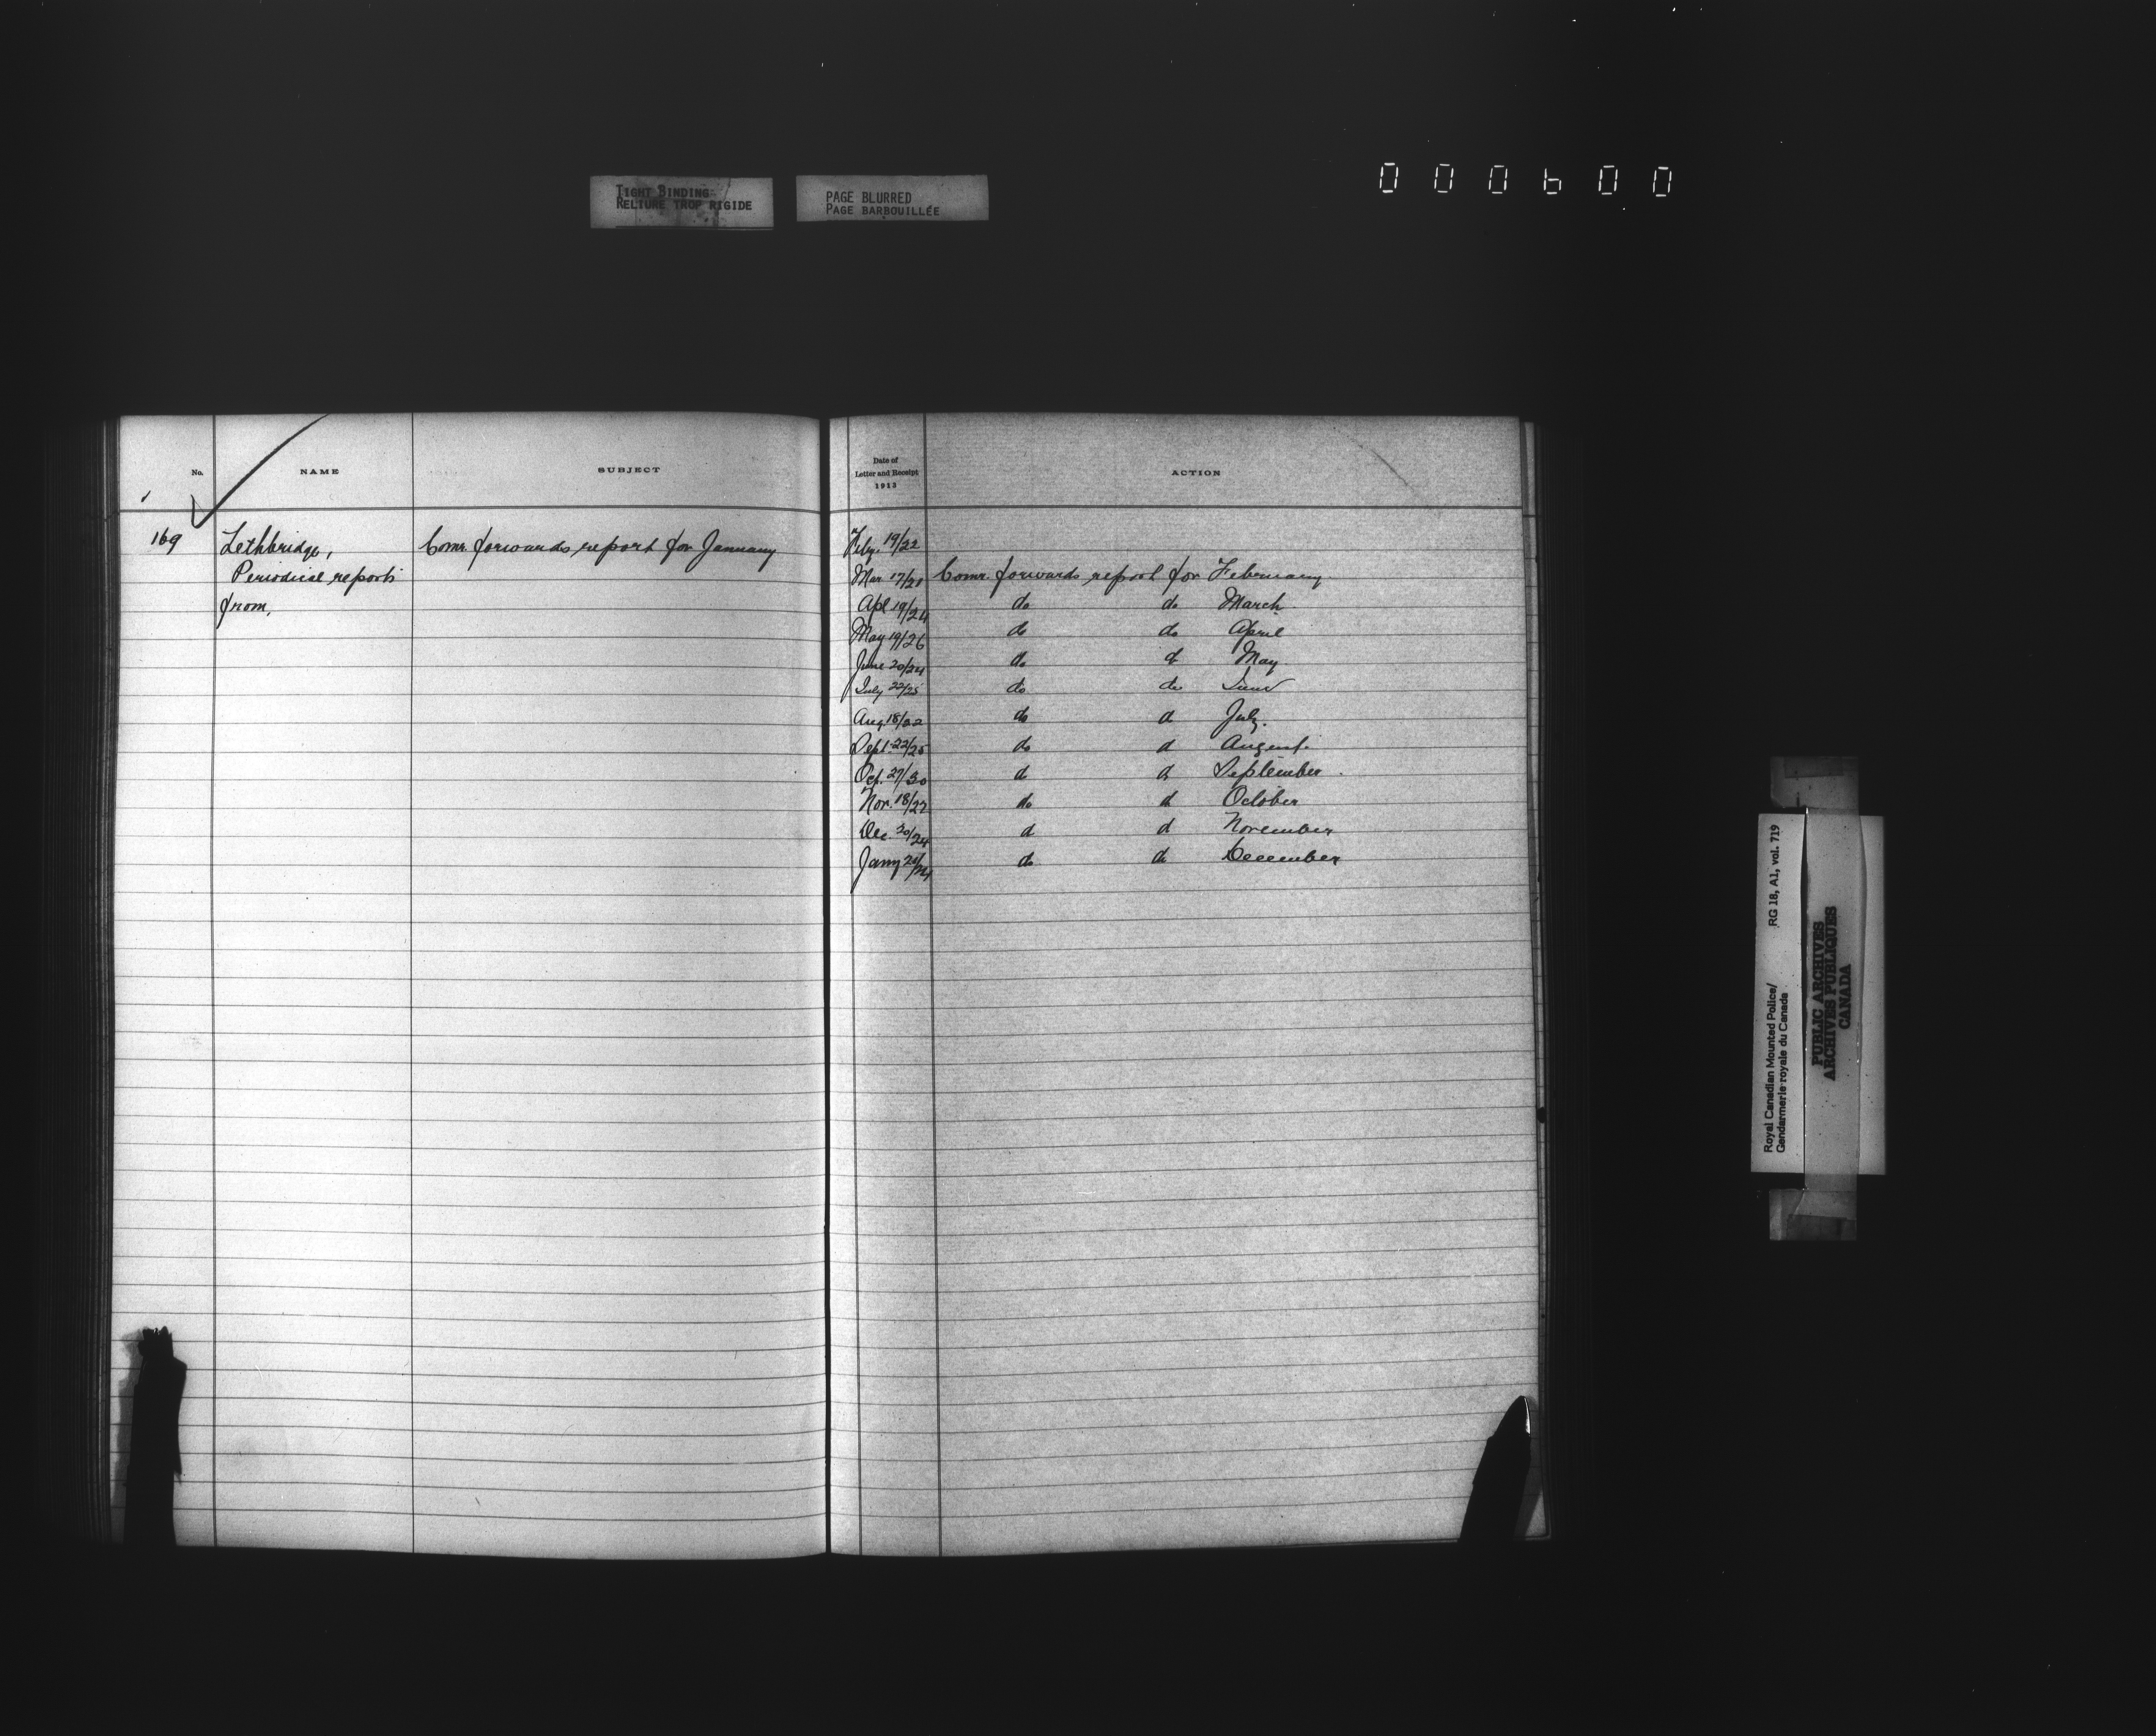 TIGHT BINDING
RELIURE TROP RIGIDE
PAGE BLURRED
PAGE BARBOUILLÉE
000600
No. NAME SUBJECT
Date of
Letter and Receipt
1913
ACTION
169 Lethbridge, Comr. forwards report for January Feby. 19/22
Periodical reports Mar. 17/21 Comr. forwards report for February.
from, Apl 19/24 do do March.
May 19/26 do do April
June 20/24 do do May.
July 22/25 do do June
Aug. 18/22 do do July.
Sept. 22/25 do do August.
Oct. 27/30 do do September.
Nov. 18/22 do do October
Dec. 20/24 do do November
Jany 20/24 do do December
Royal Canadian Mounted Police/ RG 18, A1, vol. 719
Gendarmerie royale du Canada
PUBLIC ARCHIVES
ARCHIVES PUBLIQUES
CANADA